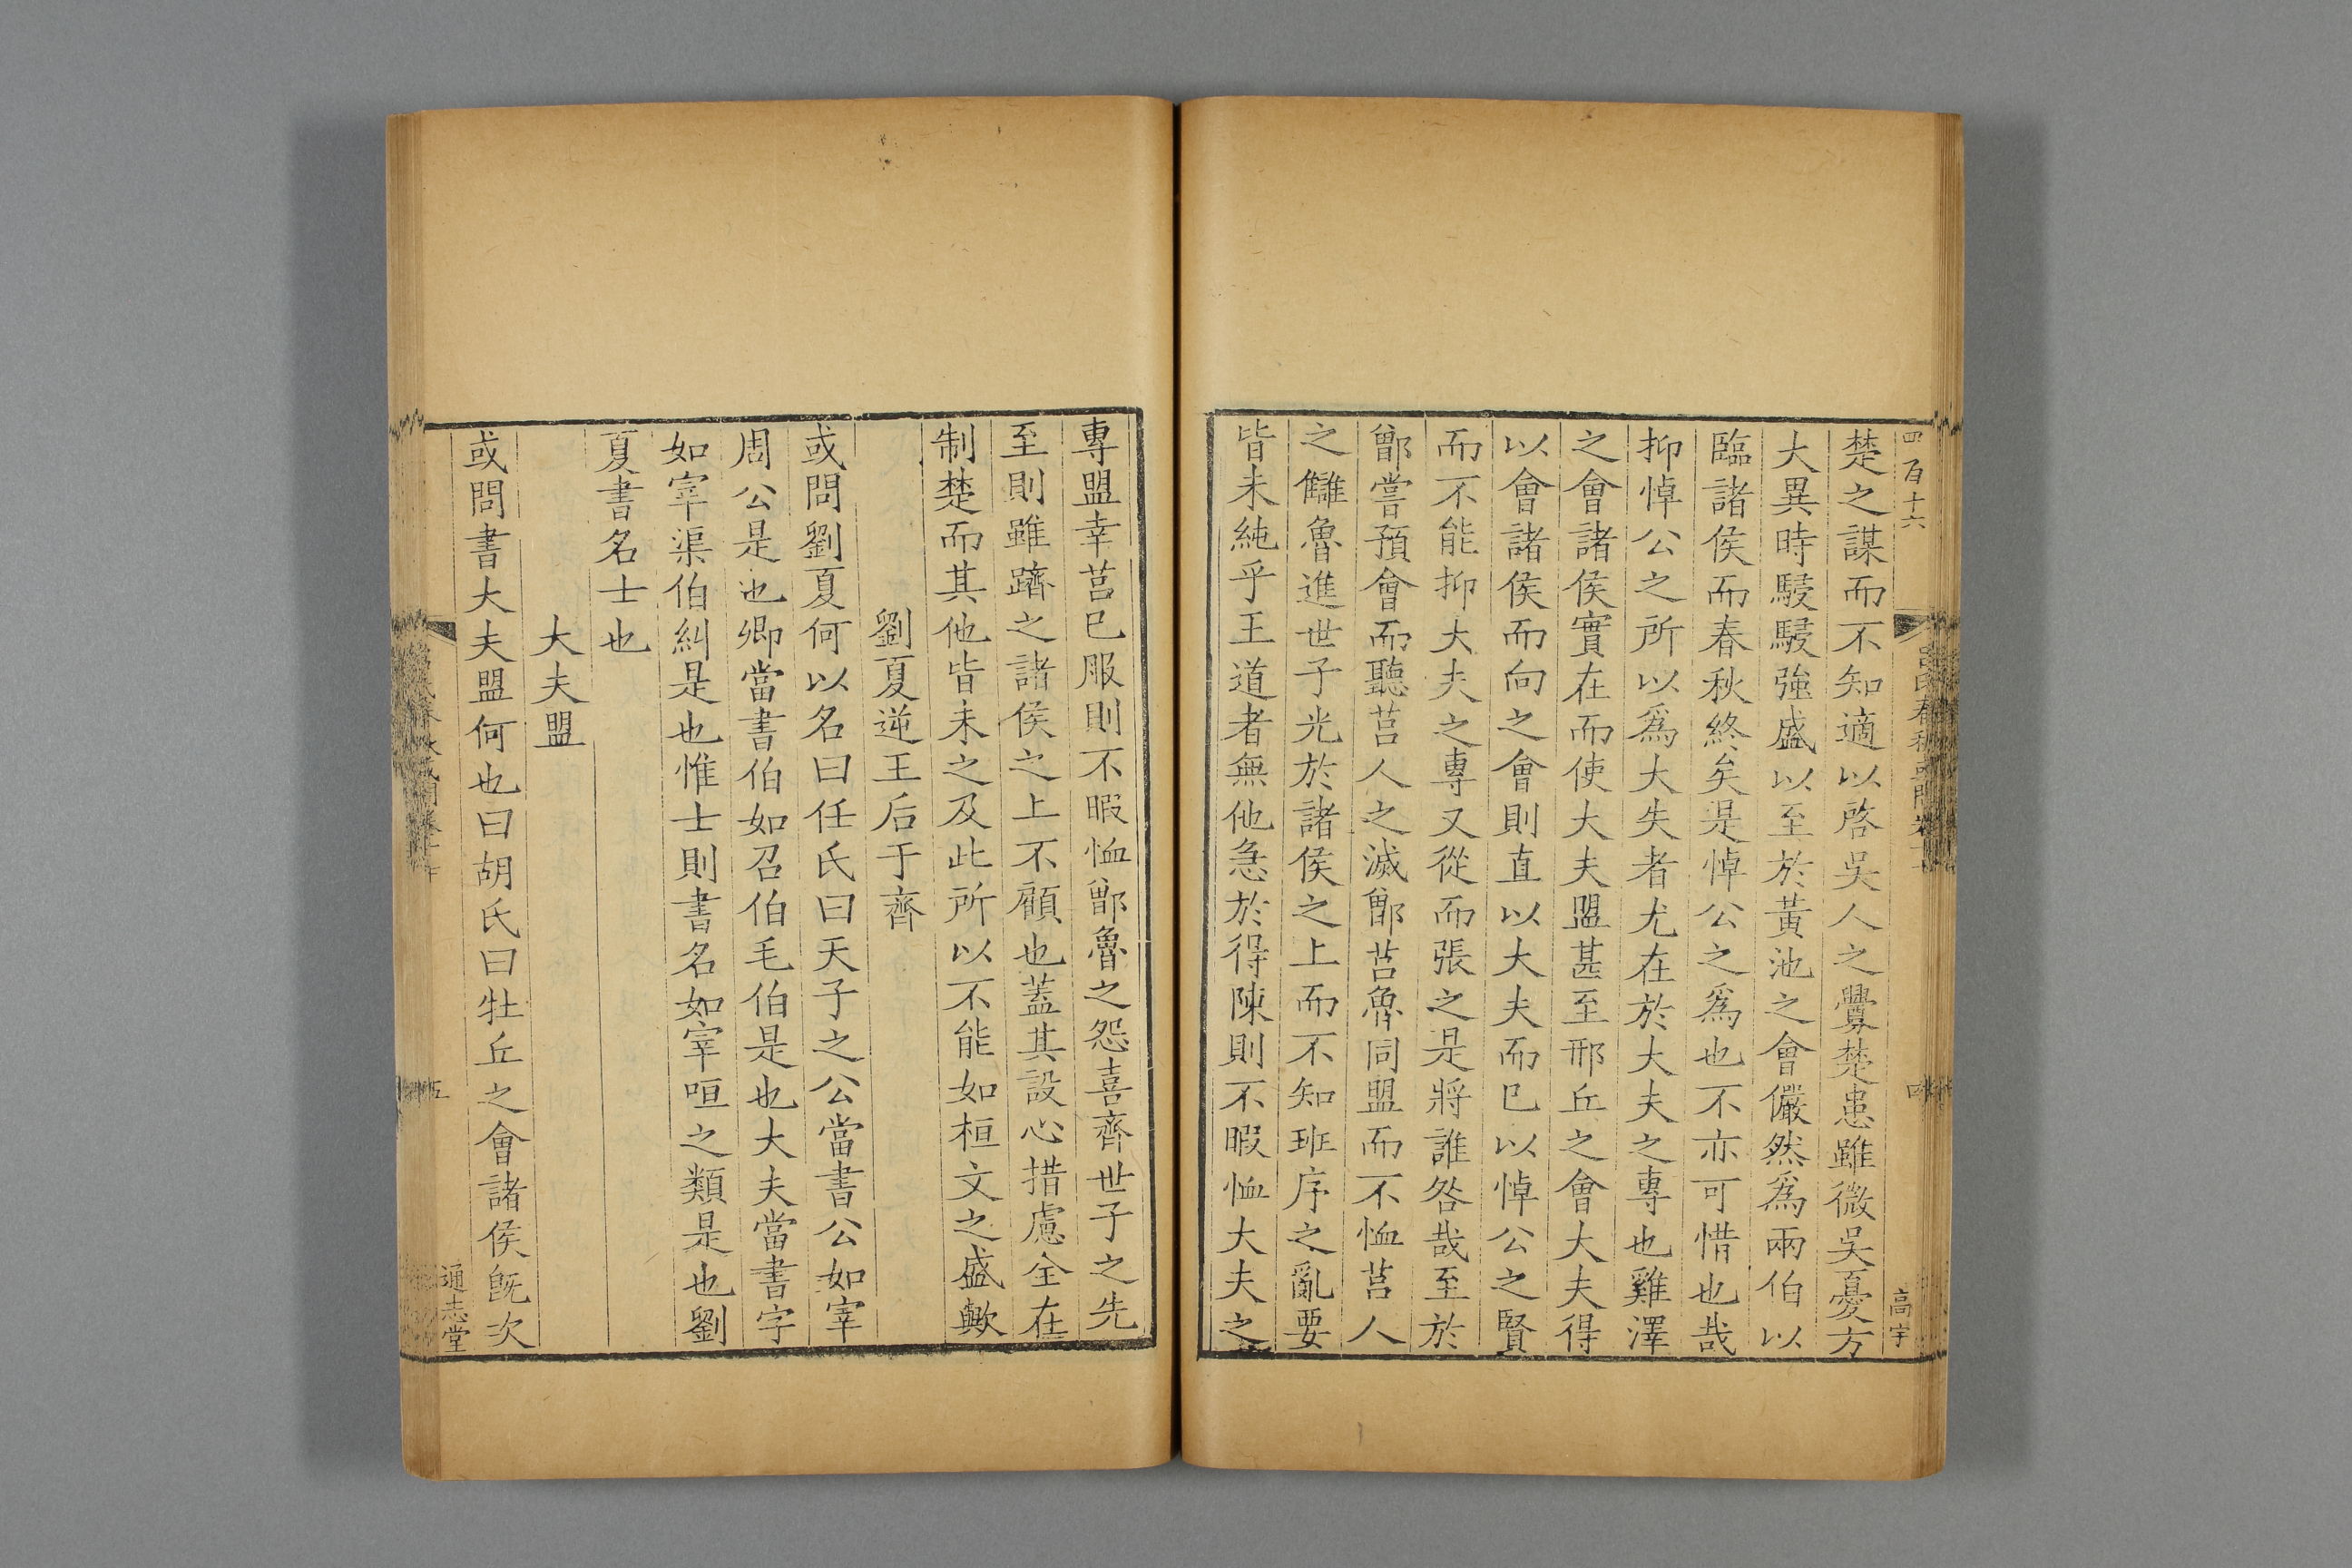 四百十六
高宇
四
楚之謀而不知適以啓吳人之釁楚患雖微吳憂方
大異時駸駸強盛以至於黃池之會儼然為兩伯以
臨諸侯而春秋終矣是悼公之為也不亦可惜也哉
抑悼公之所以為大失者尤在於大夫之專也雞澤
之會諸侯實在而使大夫盟甚至邢丘之會大夫得
以會諸侯而向之會則直以大夫而已以悼公之賢
而不能抑大夫之專又從而張之是將誰咎哉至於
鄫嘗預會而聽莒人之滅鄫莒魯同盟而不恤莒人
之讎魯進世子光於諸侯之上而不知班序之亂要
皆未純乎王道者無他急於得陳則不暇恤大夫之
專盟幸莒已服則不暇恤鄫魯之怨喜齊世子之先
至則雖躋之諸侯之上不顧也蓋其設心措慮全在
制楚而其他皆未之及此所以不能如桓文之盛歟
劉夏逆王后于齊
或問劉夏何以名曰任氏曰天子之公當書公如宰
周公是也卿當書伯如召伯毛伯是也大夫當書字
如宰渠伯糾是也惟士則書名如宰咺之類是也劉
夏書名士也
大夫盟
或問書大夫盟何也曰胡氏曰牡丘之會諸侯旣次
五
通志堂